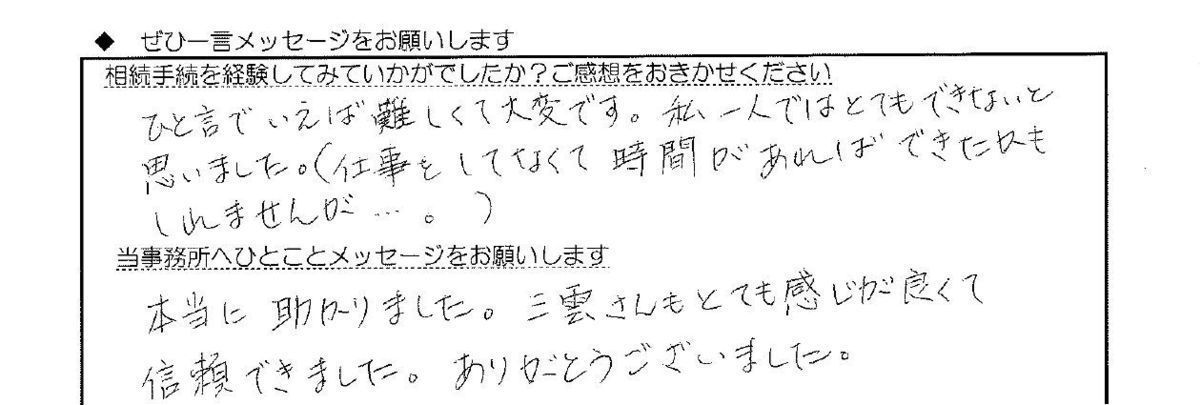 ◆ ぜひ一言メッセージをお願いします
相続手続を経験してみていかがでしたか？ご感想をおきかせください
ひと言でいえば難しくて大変です。私一人ではとてもできないと
思いました。（仕事をしてなくて時間があればできたかも
しれませんが…。）
当事務所へひとことメッセージをお願いします
本当に助かりました。三雲さんもとても感じが良くて
信頼できました。ありがとうございました。